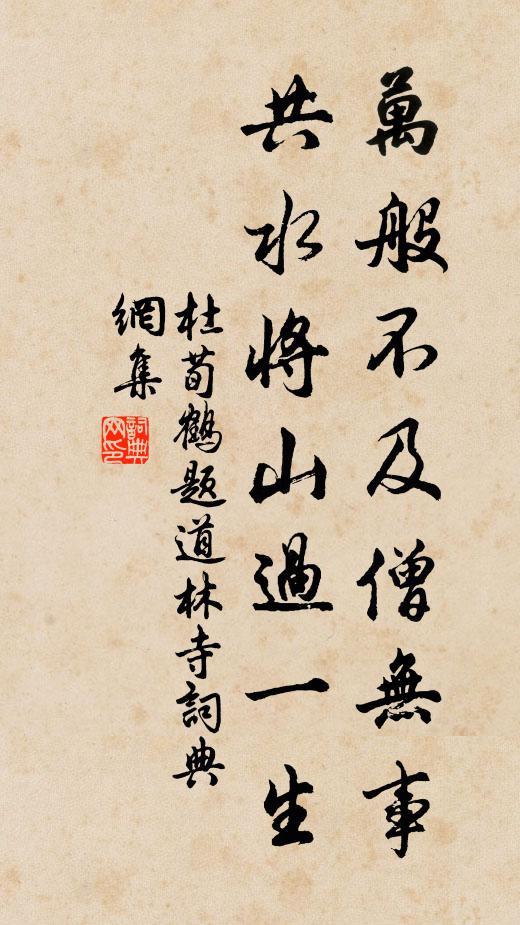 萬般不及僧無事
共水將山過一生
杜荀鶴題道林寺詞典
網集
詞典
网印